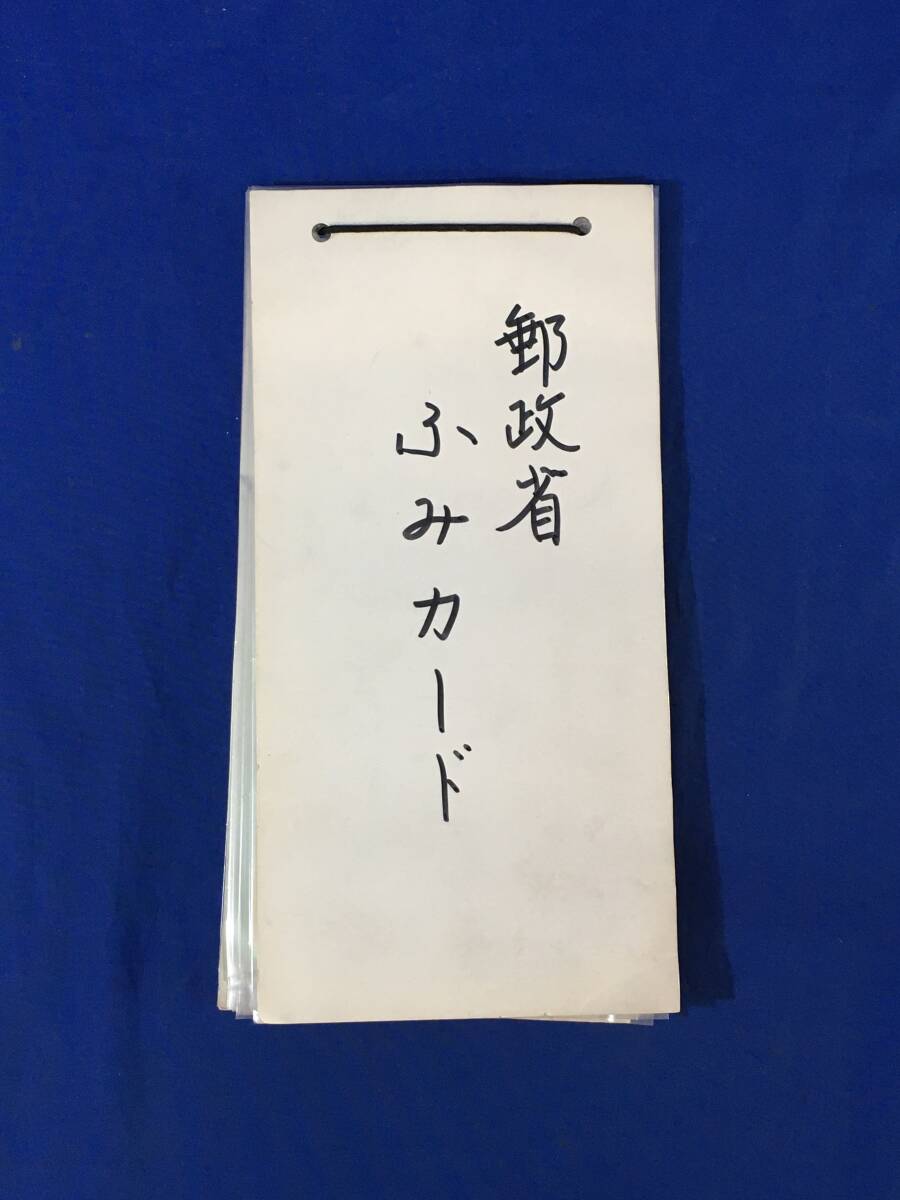 郵政省
ふみカード